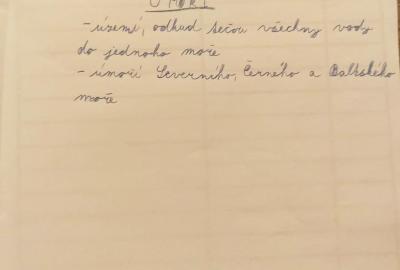 ÚMOŘÍ
- území, odkud tečou všechny vody
do jednoho moře
- úmoří Severního, Černého a Baltského
moře